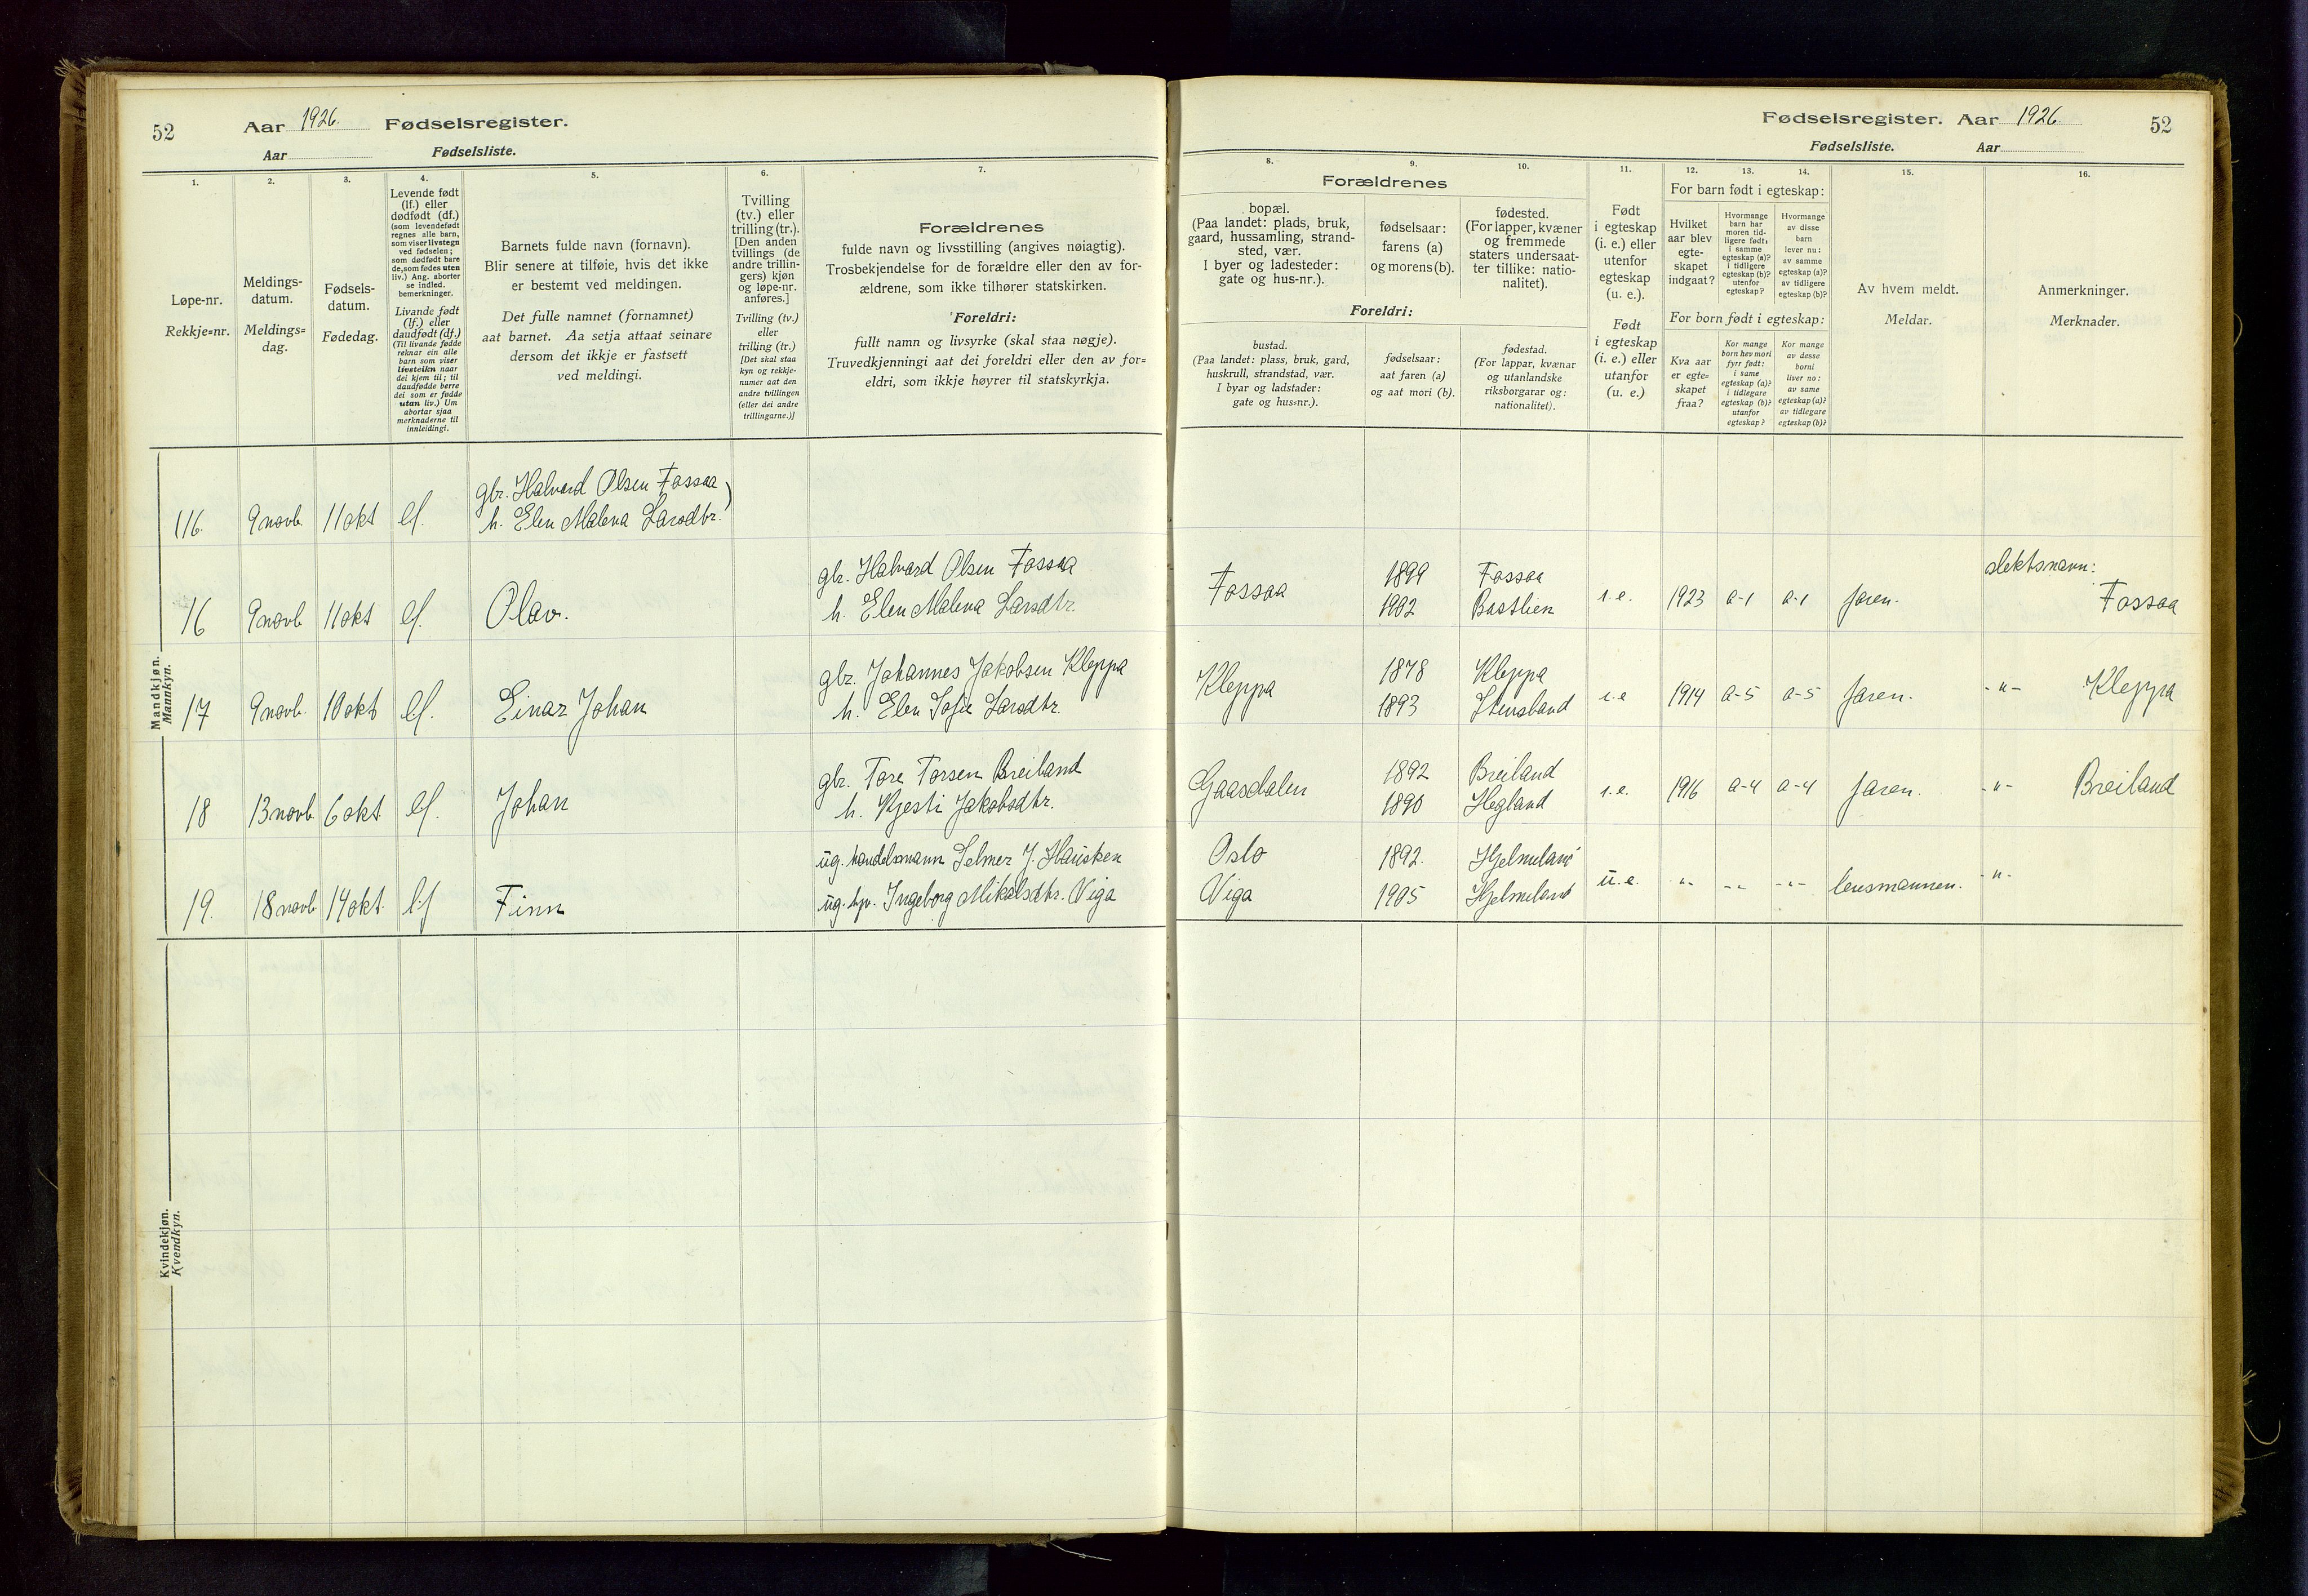 52
Aar 1926. Fødselsregister.
Aar Fødselsliste.
1.
2.
3.
4.
5.
6.
7.
Løpe-nr.
Rekkje=nr.
Meldings-
datum.
Meldings=
dag.
Fødsels-
datum.
Fødedag.
Levende født
(lf.) eller
dødfødt (df.)
(som levendefødt
regnes alle barn,
som viser livstegn
ved fødselen;
som dødfødt bare
de, som fødes uten
liv.) Ang. aborter
se indled.
bemerkninger.
Livande født
(lf.) eller
daudfødt (df.)
(Til livande fødde
reknar ein alle
barn som viser
livsteikn naar
dei kjem til; til
daudfødde berre
dei som er fødde
utan liv.) Um
abortar sjaa
merknaderne til
innleidingi.
Barnets fulde navn (fornavn).
Blir senere at tilføie, hvis det ikke
er bestemt ved meldingen.
Det fulle namnet (fornamnet)
aat barnet. Aa setja attaat seinare
dersom det ikkje er fastsett
ved meldingi.
Tvilling
(tv.) eller
trilling (tr.).
[Den anden
tvillings (de
andre trillin-
gers) kjøn
og løpe-nr.
anføres.]
Tvilling (tv.)
eller
trilling (tr.)
[Det skal staa
kyn og rekkje-
numer aat den
andre tvillingen
(eller dei andre
trillingarne.)]
Forældrenes
fulde navn og livsstilling (angives nøiagtig).
Trosbekjendelse for de forældre eller den av for-
ældrene, som ikke tilhører statskirken.
Foreldri:
fullt namn og livsyrke (skal staa nøgje).
Truvedkjenningi aat dei foreldri eller den av for=
eldri, som ikkje høyrer til statskyrkja.
Mandkjøn.
Mannkyn.
116. 9 novb. 11 okt lf. gbr. Halvard Olsen Fossaa
h. Elen Malena Larsdtr.)
16 9 novb 11 okt lf. Olav. gbr. Halvard Olsen Fossaa
h. Elen Malena Larsdtr.
17 9 novb. 10 okt lf. Einar Johan gbr. Johannes Jakobsen Kleppa
h. Elen Sofie Larsdtr.
18 13 novb 6 okt lf. Johan gbr. Tore Torsen Breiland
h. Kjesti Jakobsdtr.
19. 18 novb 14 okt. lf Finn ug. handelsmann Selmer J. Hausken
ug. hju. Ingeborg Mikalsdtr. Viga
Kvindekjøn.
Kvendkyn.
Fødselsregister. Aar 1926.
52
Fødselsliste. Aar
8.
9.
10.
11.
12.
13.
14.
15.
16.
Forældrenes
bopæl.
(Paa landet: plads, bruk,
gaard, hussamling, strand-
sted, vær.
I byer og ladesteder:
gate og hus-nr.).
fødselsaar:
farens (a)
og morens (b).
fødested.
(For lapper, kvæner
og fremmede
staters undersaat-
ter tillike: natio-
nalitet).
Foreldri:
bustad.
(Paa landet: plass, bruk, gard,
huskrull, strandstad, vær.
I byar og ladstader:
gate og hus=nr.).
fødselsaar:
aat faren (a)
og aat mori (b).
fødestad.
(For lappar, kvænar
og utanlandske
riksborgarar og:
nationalitet).
Født
i egteskap
(i. e.) eller
utenfor
egteskap
(u. e.).
Født
i egteskap
(i. e.) eller
utanfor
(u. e.)
For barn født i egteskap:
Hvilket
aar blev
egte-
skapet
indgaat?
Hvormange
barn har
moren tid-
ligere født:
i samme
egteskap (a)?
i tidligere
egteskap (b)?
utenfor
egteskap?
Hvormange
av disse
barn
lever nu:
av samme
egteskap (a)?
av tidligere
egteskap (b)?
For born født i egteskap:
Kva aar
er egte-
skapet
fraa?
Kor mange
born hev mori
fyrr født:
i same
egteskap (a)?
i tidlegare
egteskap (b)?
utanfor
egteskap?
Kor mange
av desse
borni
liver no:
av same
egteskap (a)?
av tidlegare
egteskap (b)?
Av hvem meldt.
Meldar.
Anmerkninger.
Merknader.
Fossaa 1899 Fossaa
1902 Bastlien i.e. 1923 a-1 a-1 faren. slektsnavn:
Fossaa
Kleppa 1878 Kleppa
1893 Stensland i.e 1914 a-5 a-5 faren. -"- Kleppa
Gaasdalen 1892 Breiland
1890 Hegland i.e. 1916 a-4 a-4 faren. -"- Breiland
Oslo 1892. Hjelmeland
Viga 1905 Hjelmeland u.e. -"- -"- -"- lensmannen. -"-